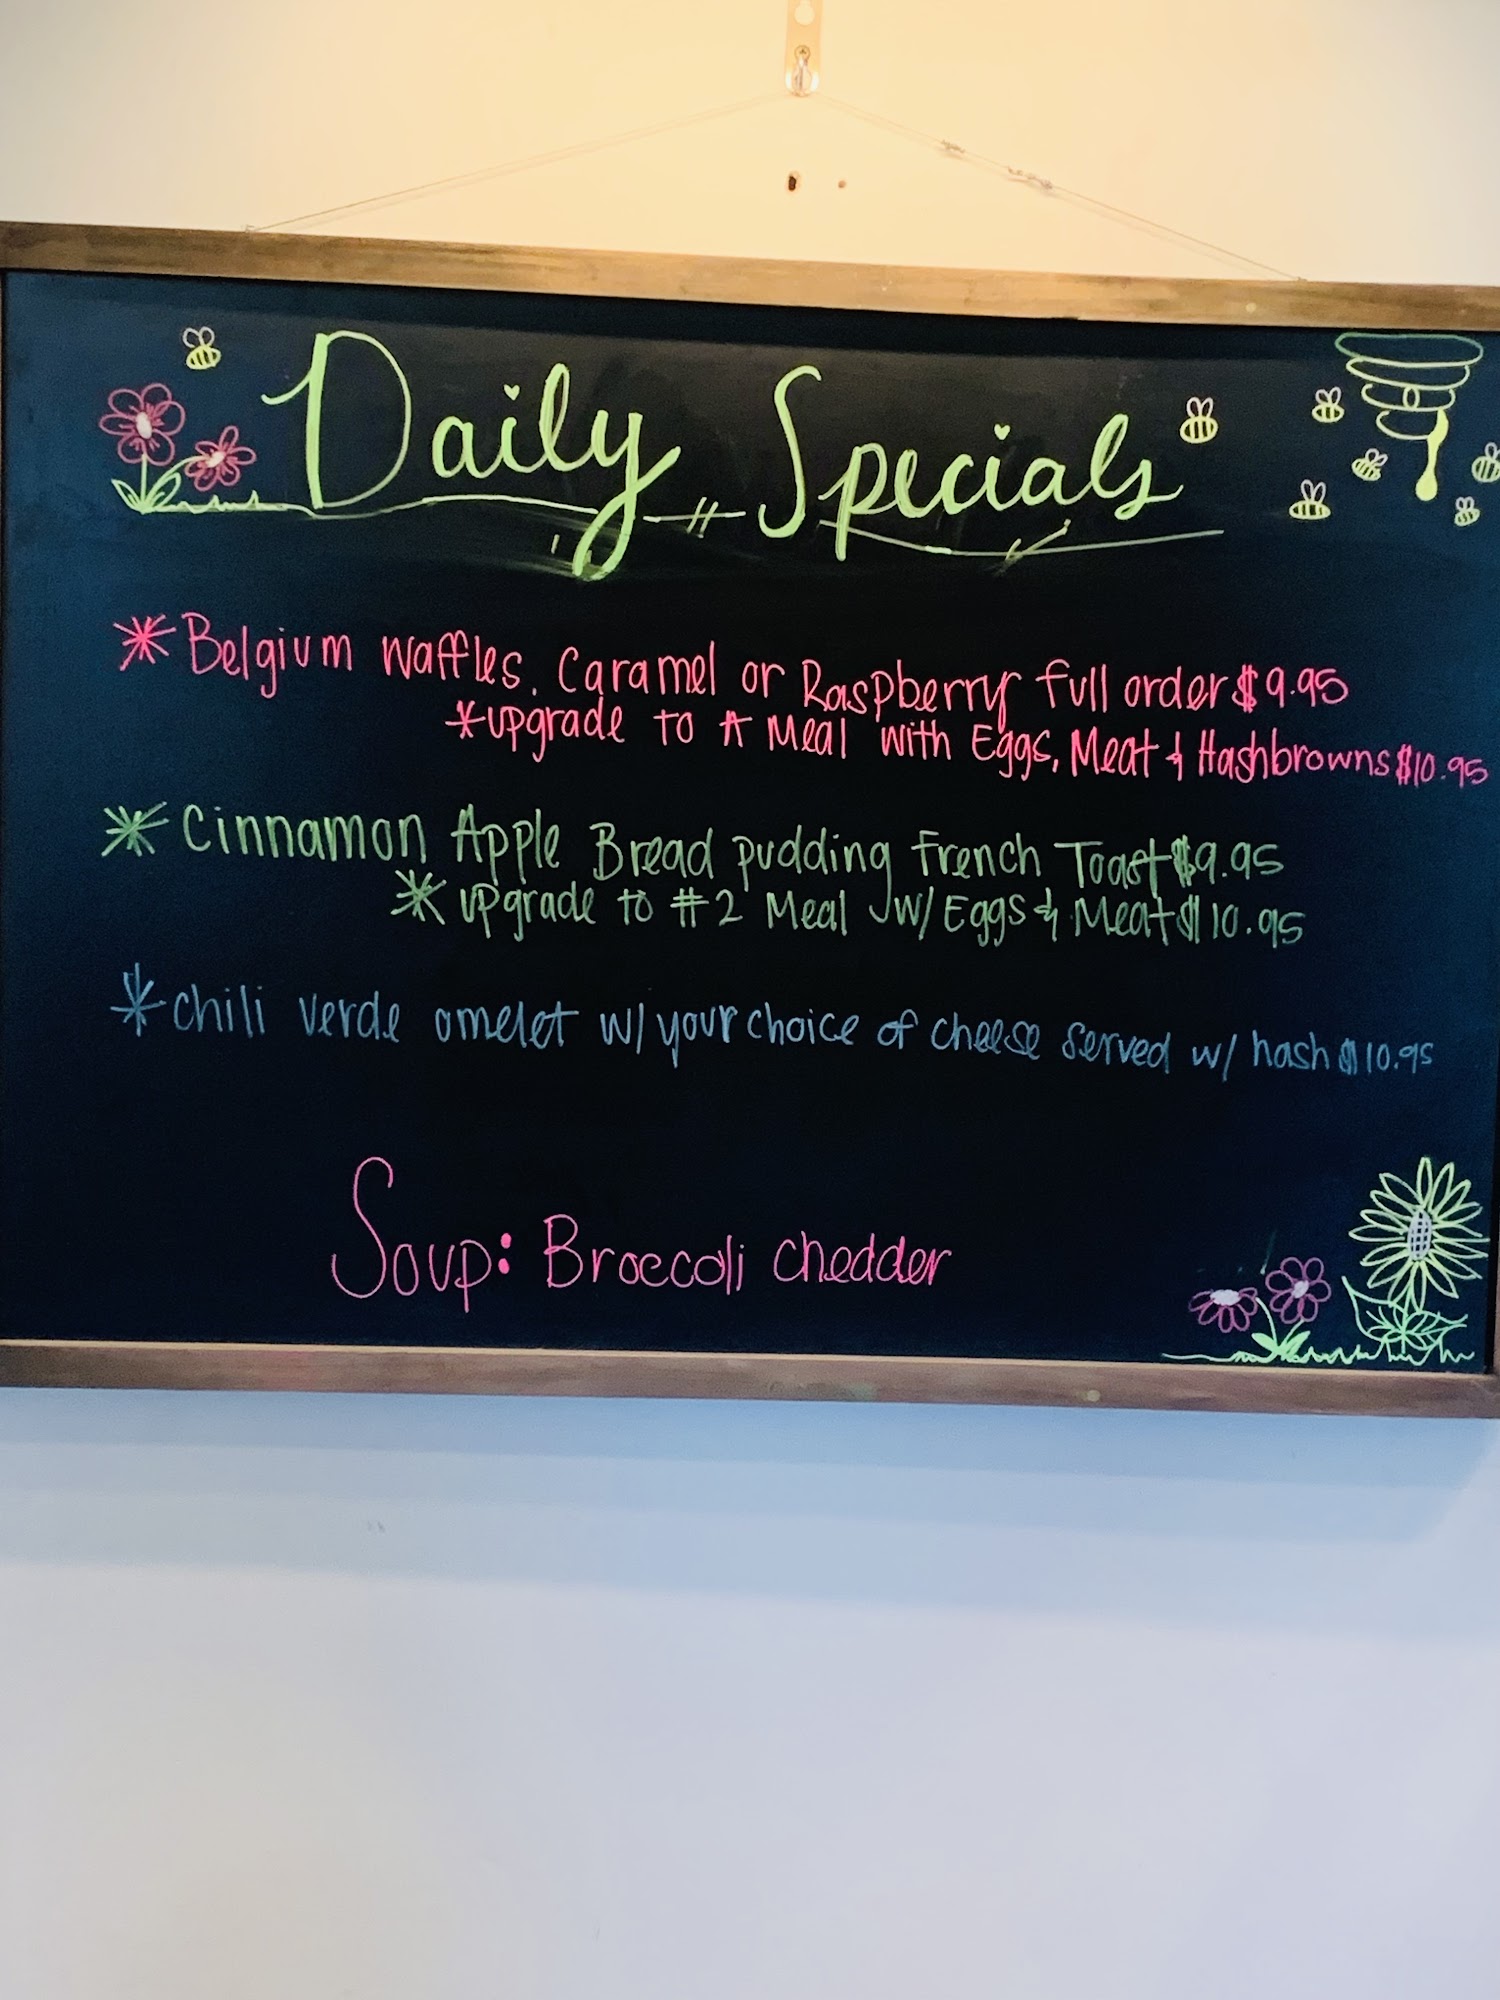 Daily Specials
*Belgium Waffles. Caramel or Raspberry full order $9.95
*upgrade to A Meal with Eggs, Meat & Hashbrowns $10.95
*Cinnamon Apple Bread pudding French Toast $9.95
*upgrade to #2 Meal w/ Eggs & Meat $10.95
*chili verde omelet w/ your choice of cheese served w/ hash $10.95
Soup: Broccoli Chedder